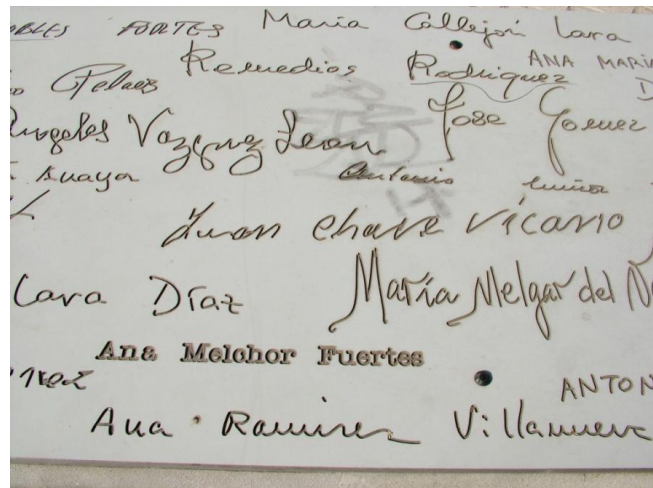 FORTES María Callejón Lara
Remedios Rodriguez ANA MARIA
Pelaez
Angeles Vazquez Jose Gomez
Anaya Antonio
Juan Chave Vicario
Lara Díaz María Melgar del
Ana Melchor Fuertes
Ana Ramirez Villanueva